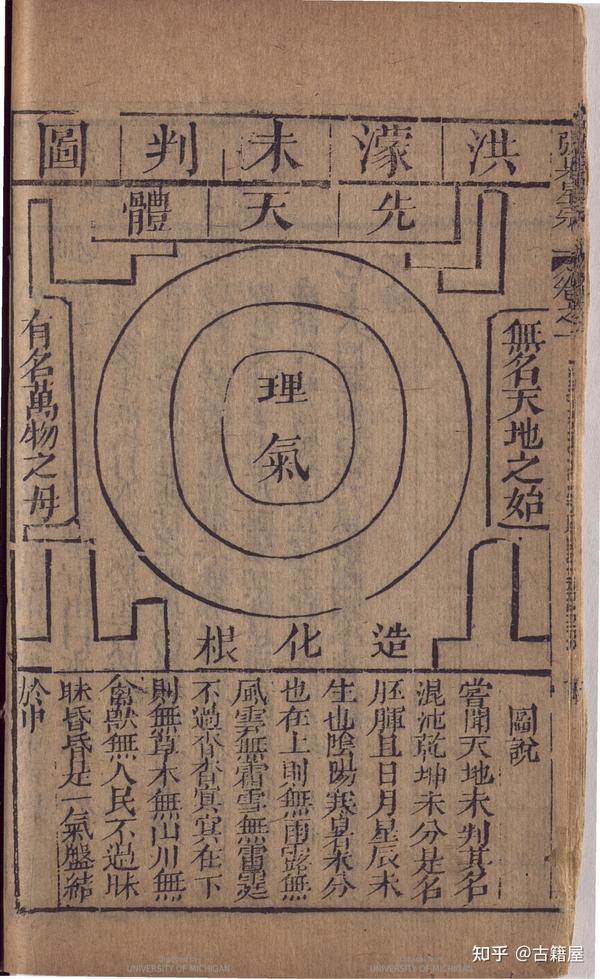 洪濛未判圖
先天體
無名天地之始
理氣
有名萬物之母
造化根
圖說
嘗聞天地未判其名
混沌乾坤未分是名
胚腪且日月星辰未
生也陰陽寒暑未分
也在上則無雨露無
風雲無霜雪無雷霆
不過杳杳冥冥在下
則無草木無山川無
禽獸無人民不過昧
昧昏昏是一氣盤結
於中
張果星宗
卷之一
Digitized by
UNIVERSITY OF MICHIGAN
UNIVERSITY OF MICHIGAN
知乎 @古籍屋